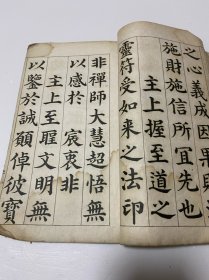 之心義成因果
施財施信所宜先也
主上握至道之
靈符受如来之法印
非禪師大慧超悟無
以感於宸衷非
主上至聖文明無
以鑒於誠願倬彼寶